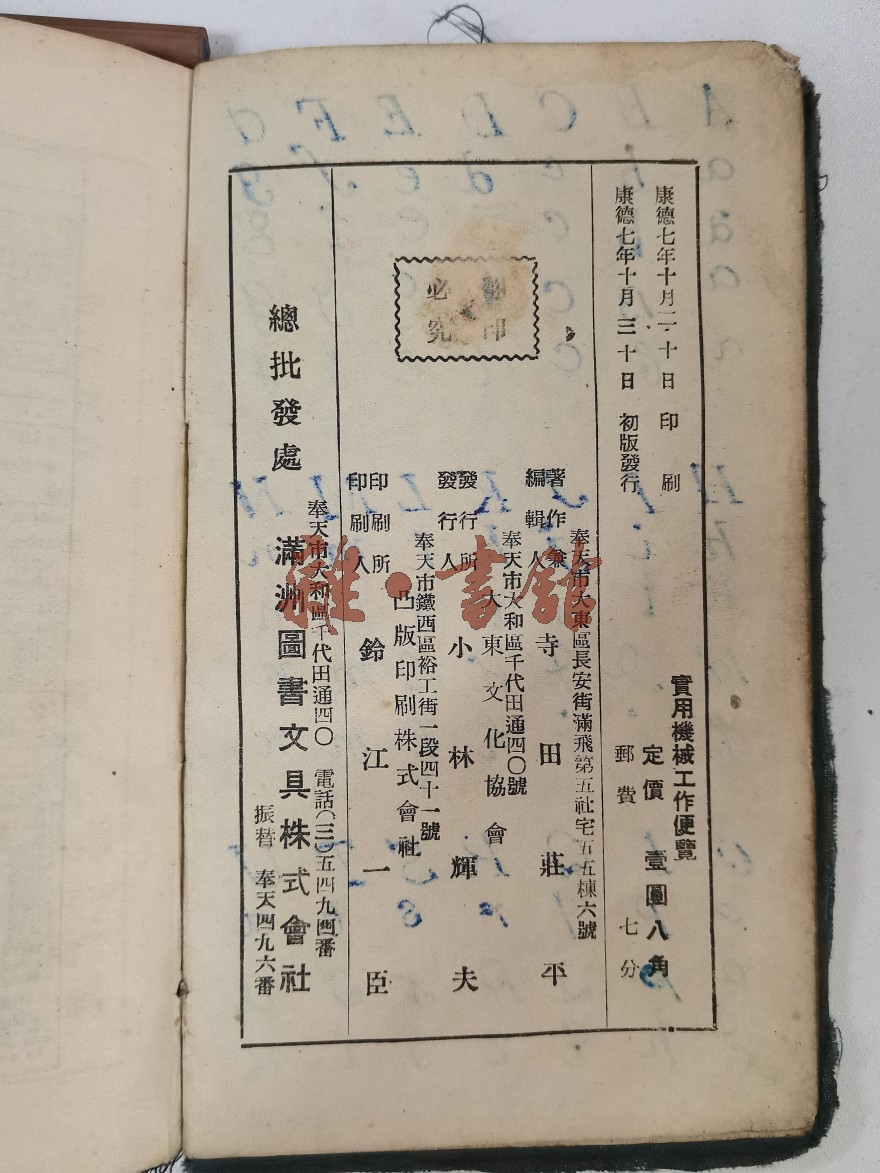 康德七年十月二十日　印刷
康德七年十月三十日　初版發行
實用機械工作便覽
定價　壹圓八角
郵費　七分
翻印
必究
奉天市大東區長安街滿飛第五社宅五五棟六號
著作兼
編輯人　寺田莊平
奉天市大和區千代田通四〇號
發行所　大東文化協會
發行人　小林輝夫
奉天市鐵西區裕工街一段四十一號
印刷所　凸版印刷株式會社
印刷人　鈴江一臣
奉天市大和區千代田通四〇　電話(三)五四九四番
總批發處　滿洲圖書文具株式會社
振替　奉天四九六番
雅·書館